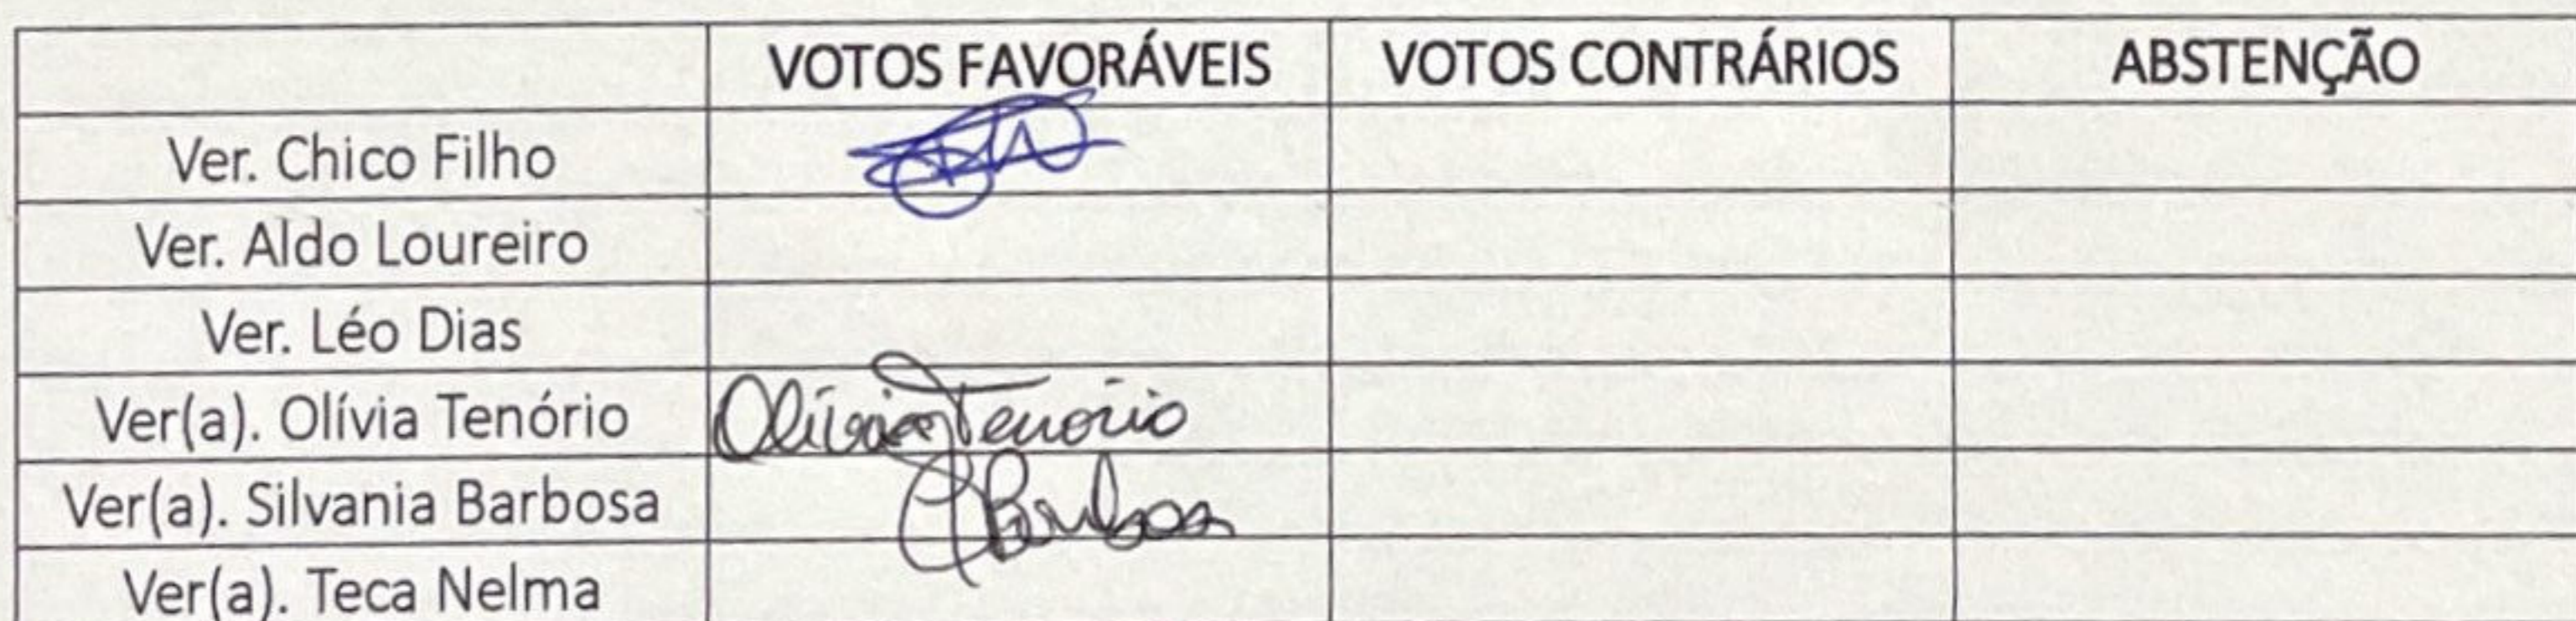 VOTOS FAVORÁVEIS VOTOS CONTRÁRIOS ABSTENÇÃO
Ver. Chico Filho
Ver. Aldo Loureiro
Ver. Léo Dias
Ver(a). Olívia Tenório Olívia Tenório
Ver(a). Silvania Barbosa Barbosa
Ver(a). Teca Nelma